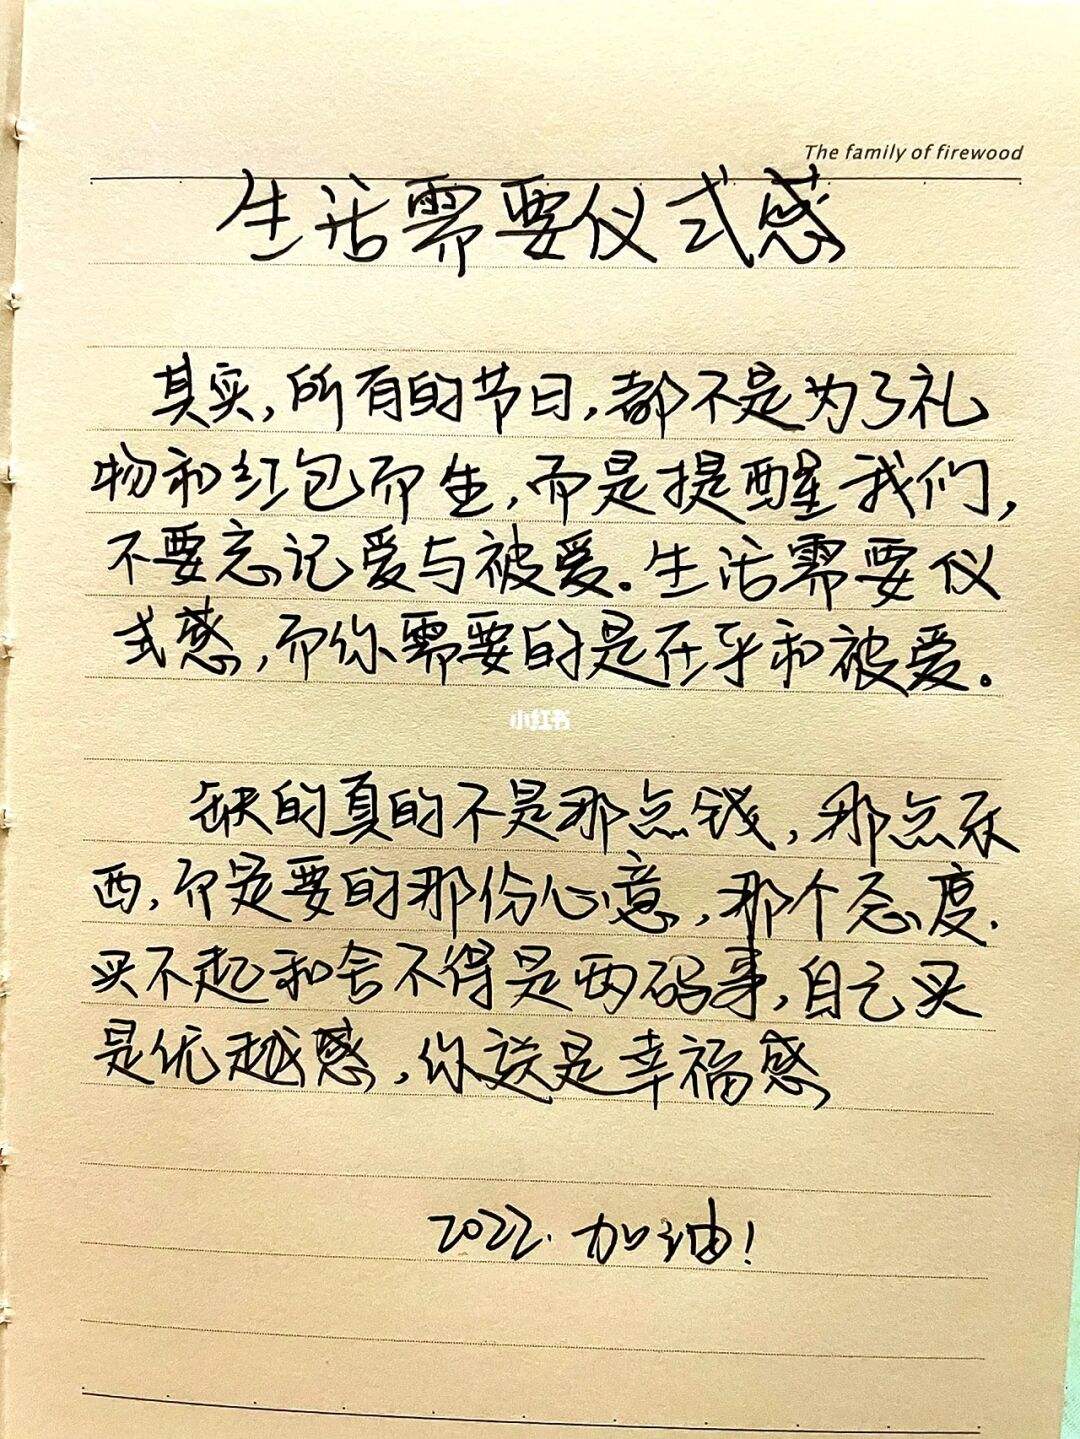 The family of firewood
生活需要仪式感
其实,所有的节日,都不是为了礼
物和红包而生,而是提醒我们,
不要忘记爱与被爱。生活需要仪
式感,而你需要的是在乎和被爱。
小红书
缺的真的不是那点钱,那点东
西,而是要的那份心意,那个态度.
买不起和舍不得是两码事,自己买
是优越感,你送是幸福感
2022.加油!